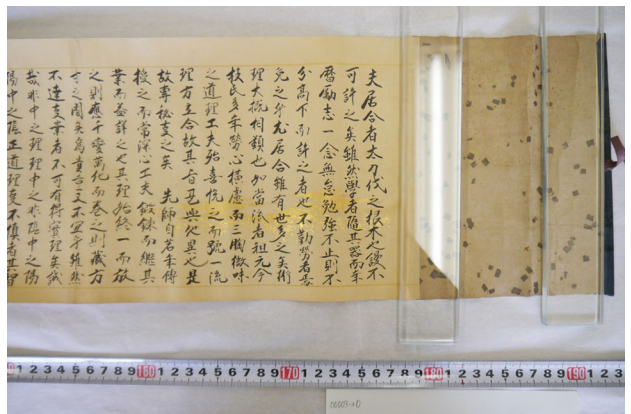 夫居合者太刀伐之根本也縵不
可許之矣雖然學者随其器而年
暦勵志一念無怠勉強不止則不
分高下可許之者也不勤勞者
免之乎尤居合雖有世多之矣術
理大概相類也如當流者祖元今
枝氏多年勞心横慮而三關微味
之道理工夫殆喜悦之而號一流
理方立合故其旨甚與他異也是
故事秘之矣 先師自若年傳
授之而常深心工夫鍛錬而継其
業而益詳之也其理始終一而放
之則應千變萬化而巻之則藏方
寸之間矣為貴又不宜乎雖然
不達業者不可有符實理矣誠
哉非中之理理中之非陰中之陽
陽中之陰正道理変不慎者其旨
1 2 3 4 5 6 7 8 9 160 1 2 3 4 5 6 7 8 9 170 1 2 3 4 5 6 7 8 9 180 1 2 3 4 5 6 7 8 9 190 1 2 3